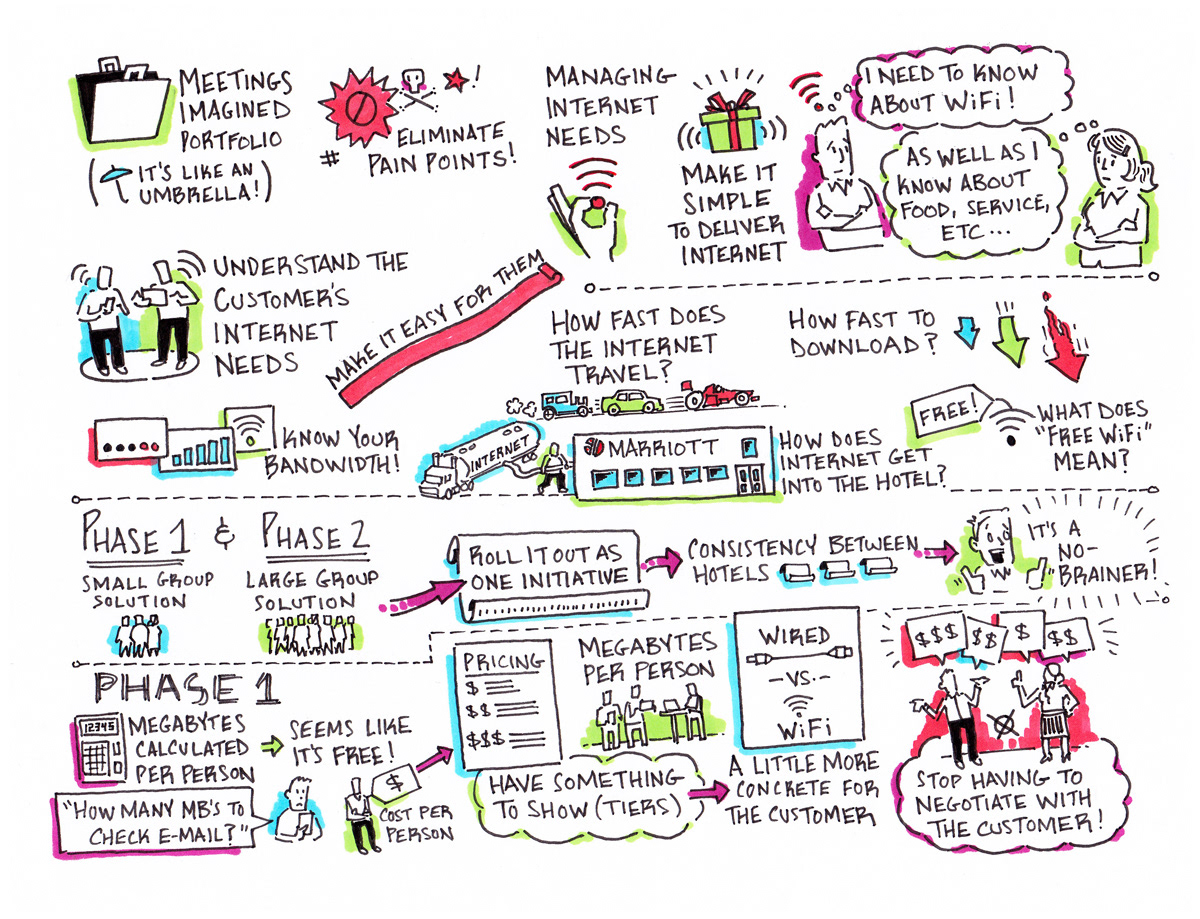 MEETINGS
IMAGINED
PORTFOLIO
(IT'S LIKE AN
UMBRELLA!)
!
ELIMINATE
# PAIN POINTS!
MANAGING
INTERNET
NEEDS
MAKE IT
SIMPLE
TO DELIVER
INTERNET
I NEED TO KNOW
ABOUT WiFi!
AS WELL AS I
KNOW ABOUT
FOOD, SERVICE,
ETC...
UNDERSTAND THE
CUSTOMER'S
INTERNET
NEEDS
MAKE IT EASY FOR THEM
KNOW YOUR
BANDWIDTH!
HOW FAST DOES
THE INTERNET
TRAVEL?
INTERNET
MARRIOTT
HOW DOES
INTERNET GET
INTO THE HOTEL?
HOW FAST TO
DOWNLOAD?
FREE!
WHAT DOES
"FREE WiFi"
MEAN?
PHASE 1 & PHASE 2
SMALL GROUP
SOLUTION
LARGE GROUP
SOLUTION
ROLL IT OUT AS
ONE INITIATIVE
CONSISTENCY BETWEEN
HOTELS
IT'S A
NO-
BRAINER!
PHASE 1
12345
MEGABYTES
CALCULATED
PER PERSON
"HOW MANY MB'S TO
CHECK E-MAIL?"
SEEMS LIKE
IT'S FREE!
$
COST PER
PERSON
PRICING
$
$$
$$$
MEGABYTES
PER PERSON
HAVE SOMETHING
TO SHOW (TIERS)
WIRED
-VS.-
WiFi
A LITTLE MORE
CONCRETE FOR
THE CUSTOMER
$$$
$$
$
$$
STOP HAVING TO
NEGOTIATE WITH
THE CUSTOMER!